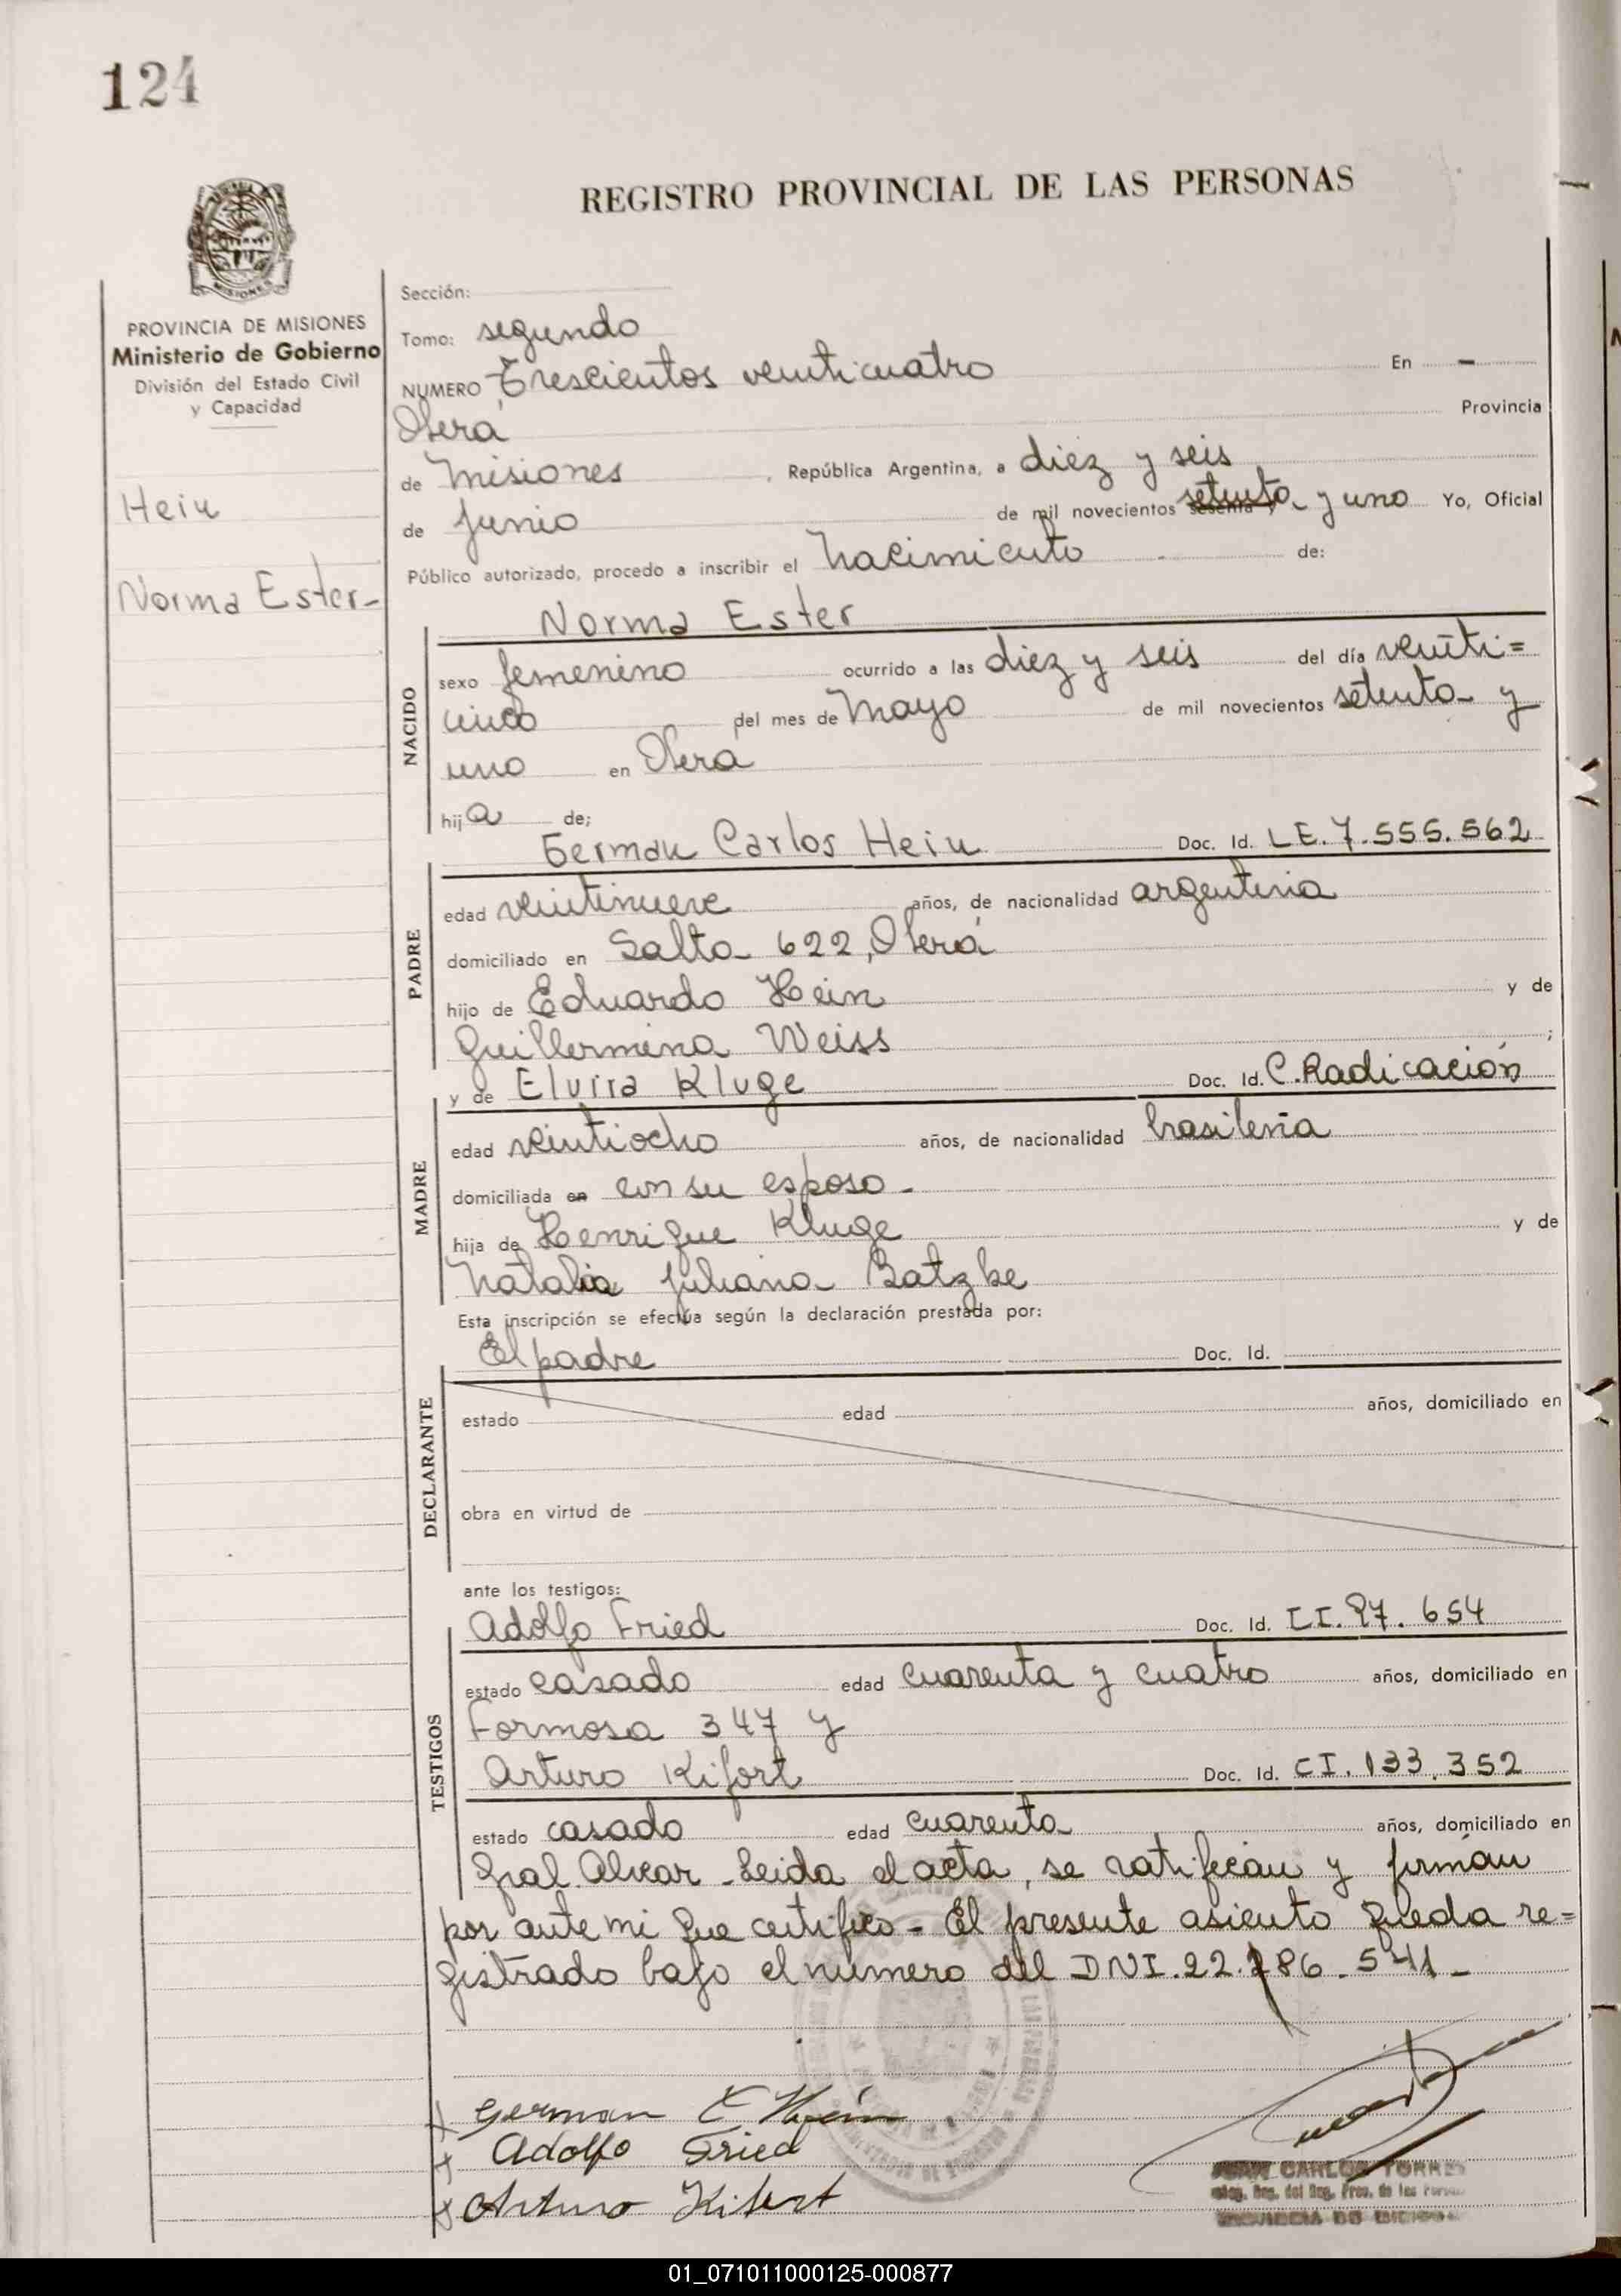 124
REGISTRO PROVINCIAL DE LAS PERSONAS
MISIONES
PROVINCIA DE MISIONES
Ministerio de Gobierno
División del Estado Civil
y Capacidad
Hein
Norma Ester-
Sección:
Tomo: segundo
NUMERO Trescientos veinticuatro En -
Oberá Provincia
de Misiones, República Argentina, a diez y seis
de Junio de mil novecientos sesenta setenta y uno Yo, Oficial
Público autorizado, procedo a inscribir el Nacimiento de:
Norma Ester
NACIDO
sexo femenino ocurrido a las diez y seis del día veinti=
cinco del mes de Mayo de mil novecientos setenta y
uno en Oberá
hija de;
German Carlos Hein Doc. Id. LE. 7.555.562
PADRE
edad veintinueve años, de nacionalidad argentina
domiciliado en Salta 622, Oberá
hijo de Eduardo Hein y de
Guillermina Weiss ;
y de Elvira Kluge Doc. Id. C. Radicación
MADRE
edad veintiocho años, de nacionalidad brasileña
domiciliada en con su esposo -
hija de Henrique Kluge y de
Natalia Juliana Batzke
Esta inscripción se efectúa según la declaración prestada por:
El padre Doc. Id.
DECLARANTE
estado edad años, domiciliado en
obra en virtud de
ante los testigos:
Adolfo Fried Doc. Id. C.I. 97.654
TESTIGOS
estado casado edad cuarenta y cuatro años, domiciliado en
Formosa 347 y
Arturo Kifort Doc. Id. CI. 133.352
estado casado edad cuarenta años, domiciliado en
Gral. Alvear - Leida el acta, se ratifican y firman
por ante mi que certifico - El presente asiento queda re=
gistrado bajo el número del DNI. 22. 86. 541 -
German C. Hein
Adolfo Fried
Arturo Kifort
JUAN CARLOS TORRES
01_071011000125-000877